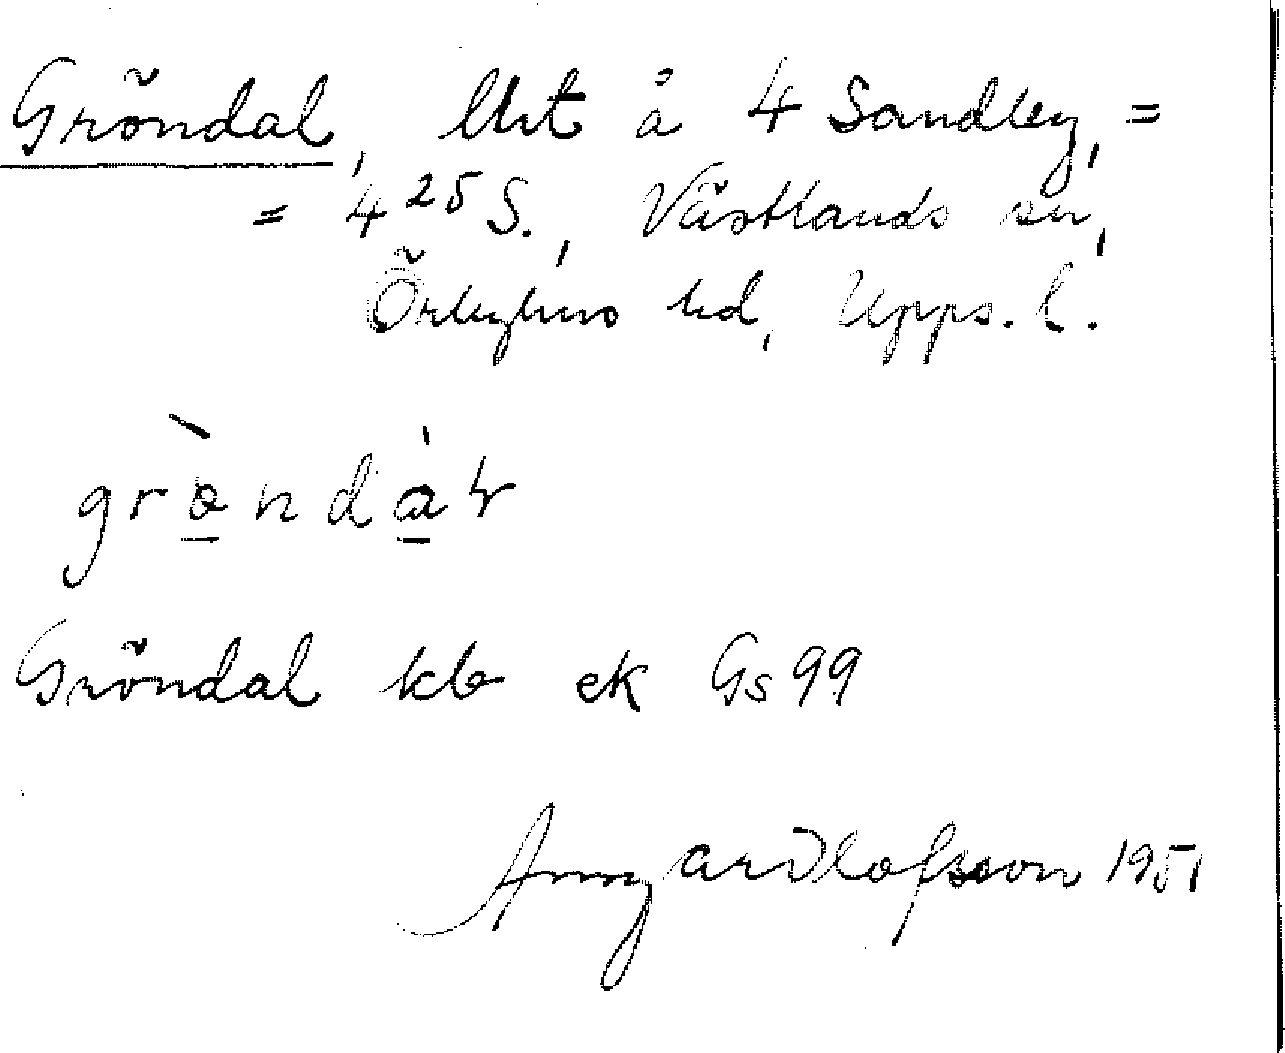 Gröndal, lht å 4 Sandby, =
= 4 25 S., Västlands sn,
Örbyhus hd, Upps. l.
grɵ̀ndàɽ
Gröndal kb ek Gs 99
Olofsson 1951